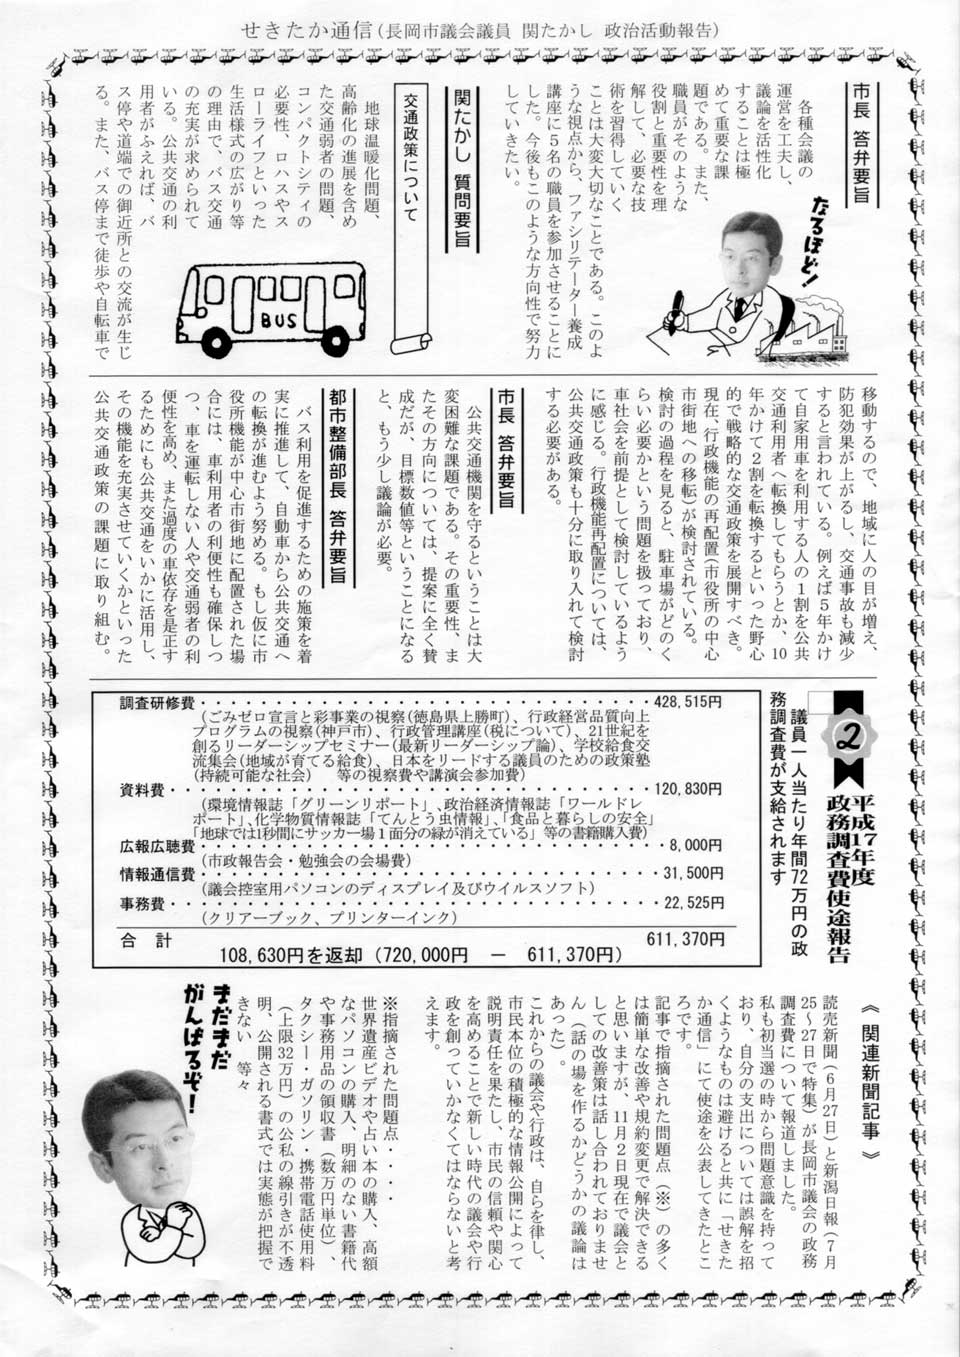 せきたか通信(長岡市議会議員 関たかし 政治活動報告)
市長 答弁要旨
各種会議の
運営を工夫し、
議論を活性化
することは極
めて重要な課
題である。また、
職員がそのような
役割と重要性を理
解して、必要な技
術を習得していく
ことは大変大切なことである。このよ
うな視点から、ファシリテーター養成
講座に5名の職員を参加させることに
した。今後もこのような方向性で努力
していきたい。
なるほど!
関たかし 質問要旨
交通政策について
地球温暖化問題、
高齢化の進展を含め
た交通弱者の問題、
コンパクトシティの
必要性、ロハスやス
ローライフといった
生活様式の広がり等
の理由で、バス交通
の充実が求められて
いる。公共交通の利
用者がふえれば、バ
ス停や道端での御近所との交流が生じ
る。また、バス停まで徒歩や自転車で
BUS
移動するので、地域に人の目が増え、
防犯効果が上がるし、交通事故も減少
すると言われている。例えば5年かけ
て自家用車を利用する人の1割を公共
交通利用者へ転換してもらうとか、10
年かけて2割を転換するといった野心
的で戦略的な交通政策を展開すべき。
現在、行政機能の再配置(市役所の中心
市街地への移転)が検討されている。
検討の過程を見ると、駐車場がどのく
らい必要かという問題を扱っており、
車社会を前提として検討しているよう
に感じる。行政機能再配置については、
公共交通政策も十分に取り入れて検討
する必要がある。
市長 答弁要旨
公共交通機関を守るということは大
変困難な課題である。その重要性、ま
たその方向については、提案に全く賛
成だが、目標数値等ということになる
と、もう少し議論が必要。
都市整備部長 答弁要旨
バス利用を促進するための施策を着
実に推進して、自動車から公共交通へ
の転換が進むよう努める。もし仮に市
役所機能が中心市街地に配置された場
合には、車利用者の利便性も確保しつ
つ、車を運転しない人や交通弱者の利
便性を高め、また過度の車依存を是正す
るためにも公共交通をいかに活用し、
その機能を充実させていくかといった
公共交通政策の課題に取り組む。
2
平成17年度
政務調査費使途報告
議員一人当たり年間72万円の政
務調査費が支給されます
調査研修費・・・・・・・・・・・・・・・・・・・・・・・・・・・428,515円
(ごみゼロ宣言と彩事業の視察(徳島県上勝町)、行政経営品質向上
プログラムの視察(神戸市)、行政管理講座(税について)、21世紀を
創るリーダーシップセミナー(最新リーダーシップ論)、学校給食交
流集会(地域が育てる給食)、日本をリードする議員のための政策塾
(持続可能な社会) 等の視察費や講演会参加費)
資料費・・・・・・・・・・・・・・・・・・・・・・・・・・・・・120,830円
(環境情報誌「グリーンリポート」、政治経済情報誌「ワールドレ
ポート」、化学物質情報誌「てんとう虫情報」、「食品と暮らしの安全」
「地球では1秒間にサッカー場1面分の緑が消えている」等の書籍購入費)
広報広聴費・・・・・・・・・・・・・・・・・・・・・・・・・・・8,000円
(市政報告会・勉強会の会場費)
情報通信費・・・・・・・・・・・・・・・・・・・・・・・・・・・31,500円
(議会控室用パソコンのディスプレイ及びウイルスソフト)
事務費・・・・・・・・・・・・・・・・・・・・・・・・・・・・・22,525円
(クリアーブック、プリンターインク)
合 計 611,370円
108,630円を返却(720,000円 - 611,370円)
《 関連新聞記事 》
読売新聞(6月27日)と新潟日報(7月
25~27日で特集)が長岡市議会の政務
調査費について報道しました。
私も初当選の時から問題意識を持って
おり、自分の支出については誤解を招
くようなものは避けると共に「せきた
か通信」にて使途を公表してきたとこ
ろです。
記事で指摘された問題点(※)の多く
は簡単な改善や規約変更で解決できる
と思いますが、11月2日現在で議会と
しての改善策は話し合われておりませ
ん(話の場を作るかどうかの議論は
あった)。
これからの議会や行政は、自らを律し、
市民本位の積極的な情報公開によって
説明責任を果たし、市民の信頼や関心
を高めることで新しい時代の議会や行
政を創っていかなくてはならないと考
えます。
※指摘された問題点・・・・
世界遺産ビデオや占い本の購入、高額
なパソコンの購入、明細のない書籍代
や事務用品の領収書(数万円単位)、
タクシー・ガソリン・携帯電話使用料
(上限32万円)の公私の線引きが不透
明、公開される書式では実態が把握で
きない 等々
まだまだ
がんばるぞ!